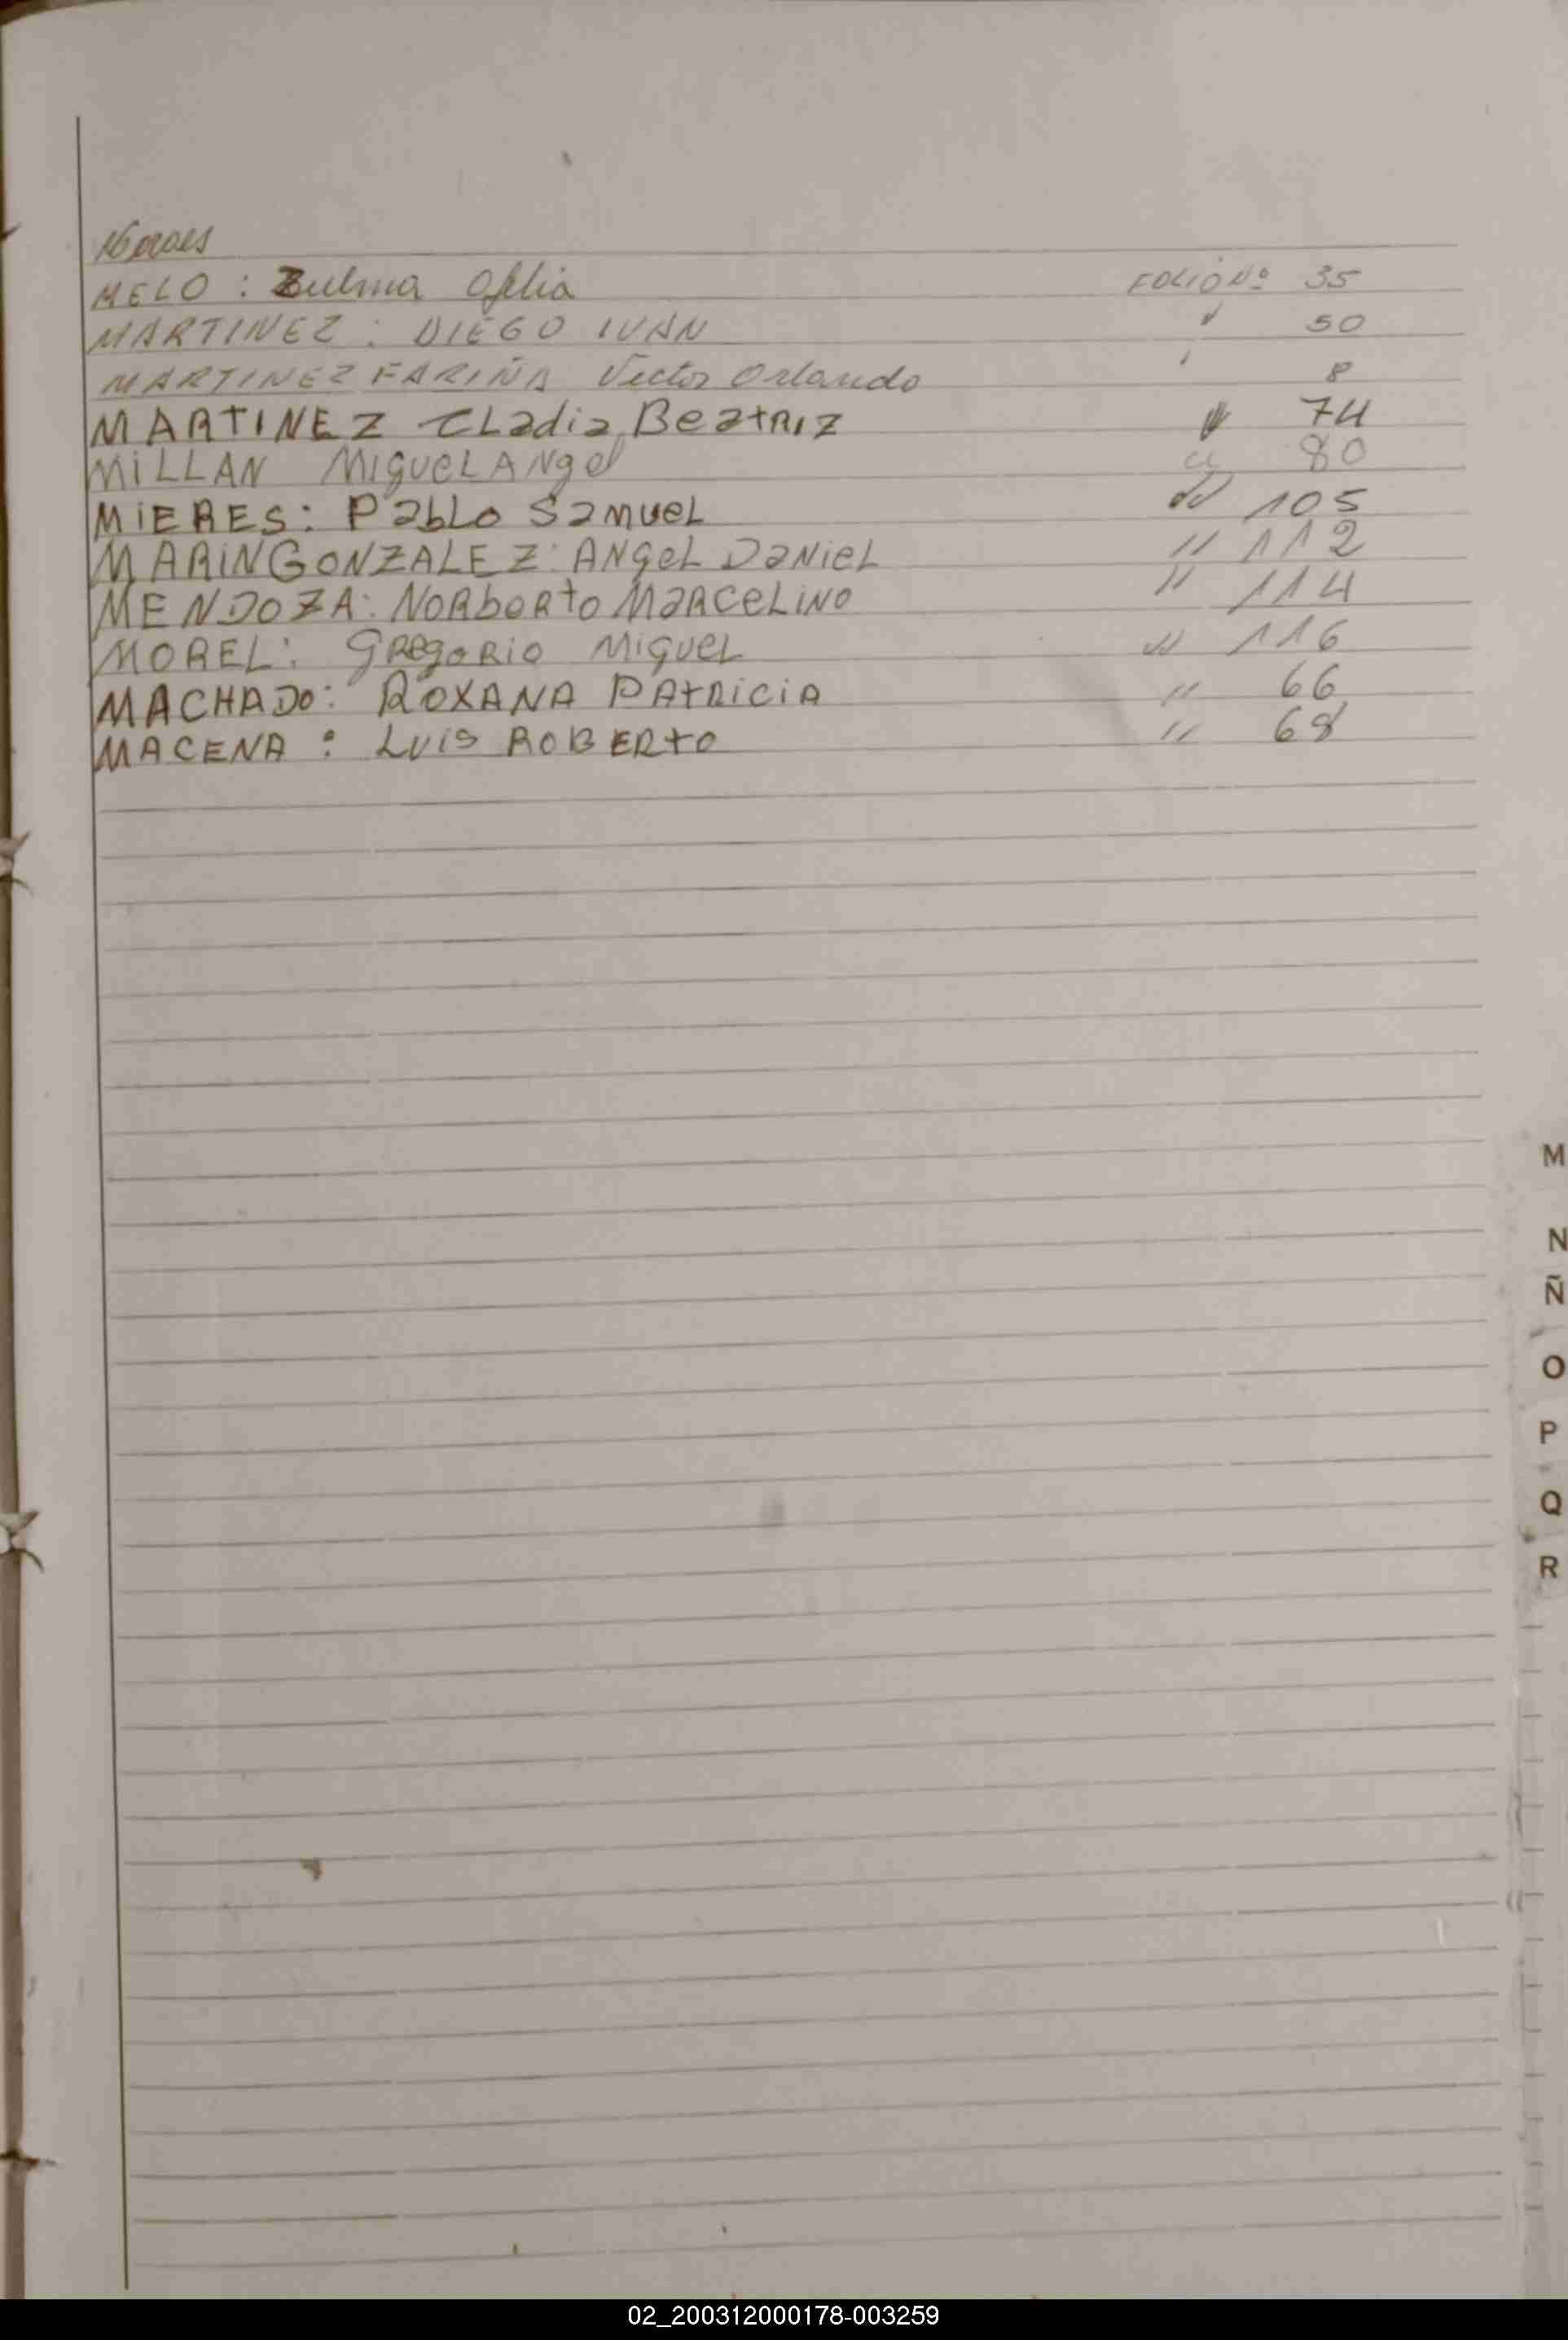 MELO : Zulma Ofelia FOLIO Nº 35
MARTINEZ : DIEGO IVAN " 50
MARTINEZ FARIÑA Victor Orlando ' 8
MARTINEZ CLadia Beatriz " 74
MiLLAN MiguelAngel " 80
MiERES: Pablo Samuel " 105
MARiNGONZALEZ: ANgel DaNiel " 112
MENDOZA: NORbeRto MaRCeLiNO " 114
MOREL: gRegoRio Miguel " 116
MACHADO: ROXANA PAtRiCiA " 66
MACENA : LUiS ROBERtO " 68
M
N
Ñ
O
P
Q
R
02_200312000178-003259